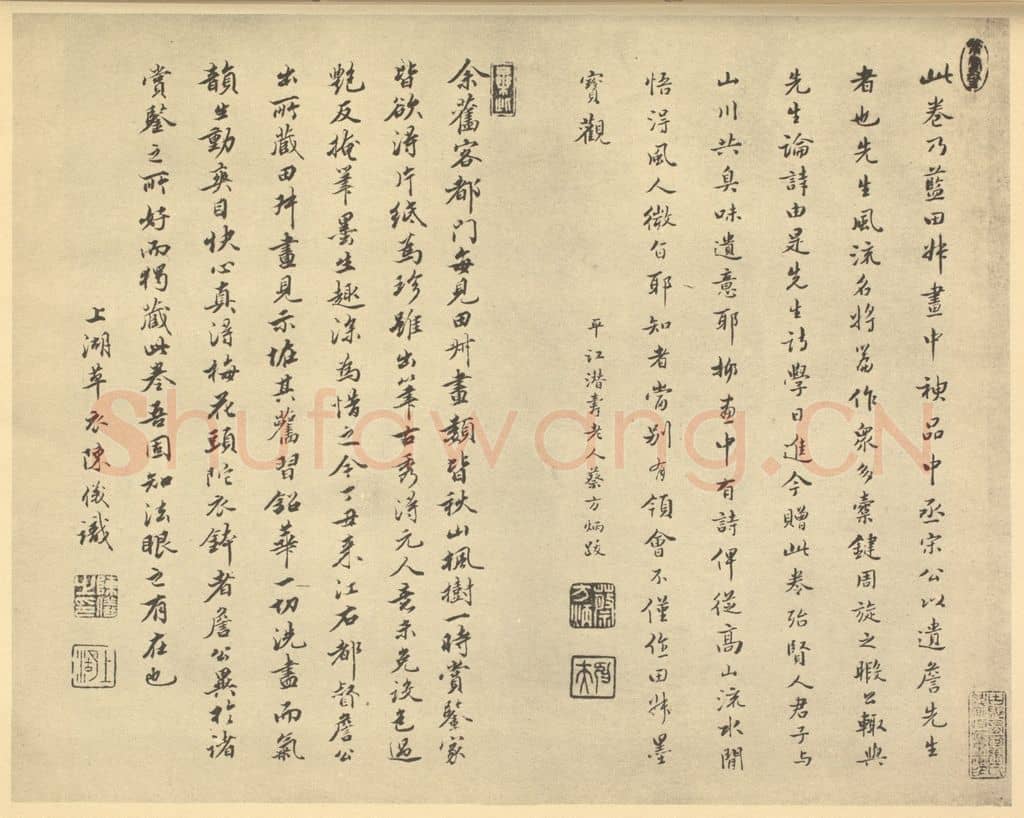 此卷乃藍田叔畫中神品中丞宋公以遺詹先生
者也先生風流名將蓄作衆多櫜鍵周旋之暇公輒與
先生論詩由是先生詩學日進今贈此卷殆賢人君子与
山川共臭味遺意耶抑畫中有詩俾從高山流水間
悟淂風人微旨耶知者當别有領會不僅作田叔墨
寶觀
平江潜壽老人蔡方炳跋
蔡方炳
余舊客都门每見田叔畫類皆秋山楓樹一時賞鑒家
皆欲淂片紙為珍雖出筆古秀淂元人意未免设色過
艷反掩筆墨生趣深為惜之今丁丑来江右都督詹公
出所藏田叔畫見示摧其舊習鉛華一切洗盡而氣
韻生動爽目快心真淂梅花頭陀衣鉢者詹公異於諸
賞鑒之所好而獨藏此卷吾固知法眼之有在也
上湖草衣陳儀識
陳儀之印
上湖
Shufawang.CN